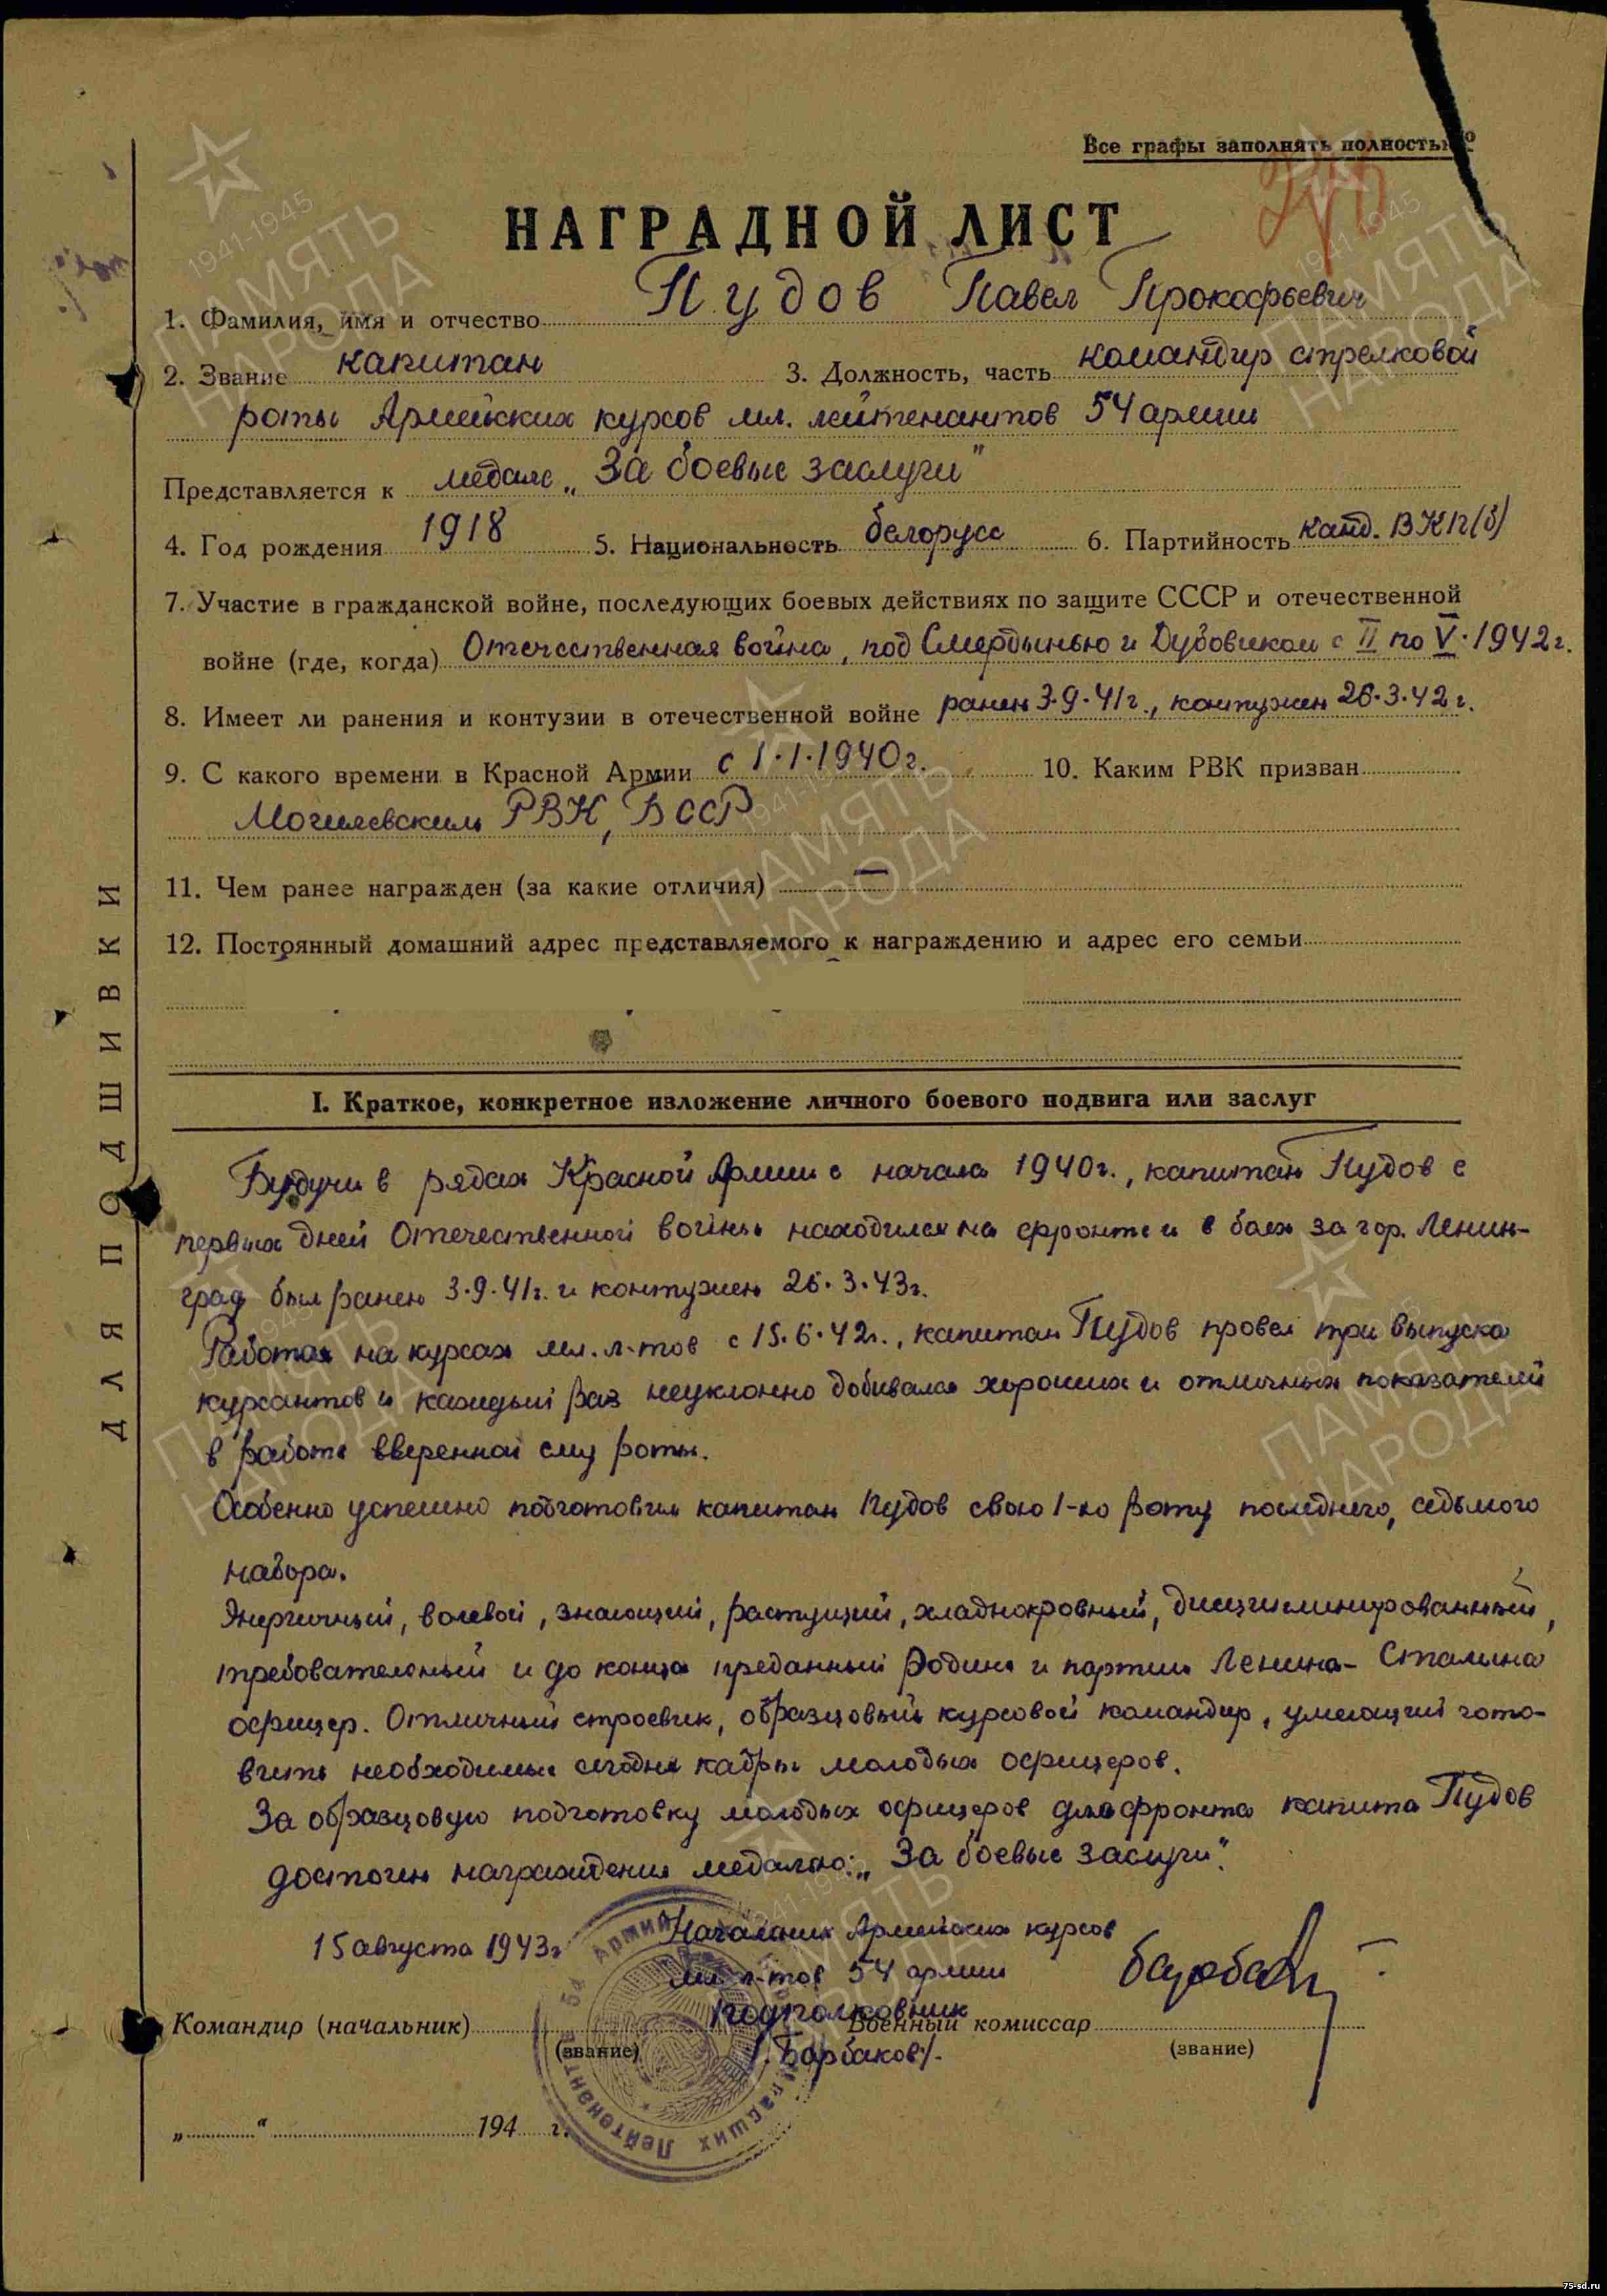 Все графы заполнять полностью
НАГРАДНОЙ ЛИСТ
1. Фамилия, имя и отчество Пудов Павел Прокофьевич
2. Звание капитан 3. Должность, часть командир стрелковой
роты Армейских курсов мл. лейтенантов 54 армии
Представляется к медале „За боевые заслуги"
4. Год рождения 1918 5. Национальность белорусс 6. Партийность канд. ВКП(б)
7. Участие в гражданской войне, последующих боевых действиях по защите СССР и отечественной
войне (где, когда) Отечественная война, под Смердынью и Дубовиком с II по V. 1942 г.
8. Имеет ли ранения и контузии в отечественной войне ранен 3.9.41 г., контужен 26.3.42 г.
9. С какого времени в Красной Армии с 1.1.1940 г. 10. Каким РВК призван
Могилевским РВК, БССР
11. Чем ранее награжден (за какие отличия) —
12. Постоянный домашний адрес представляемого к награждению и адрес его семьи
I. Краткое, конкретное изложение личного боевого подвига или заслуг
Будучи в рядах Красной Армии с начала 1940 г., капитан Пудов с
первых дней Отечественной войны находился на фронте и в боях за гор. Ленин-
град был ранен 3.9.41 г. и контужен 26.3.43 г.
Работая на курсах мл. л-тов с 15.6.42 г., капитан Пудов провел три выпуска
курсантов и каждый раз неуклонно добивался хороших и отличных показателей
в работе вверенной ему роты.
Особенно успешно подготовил капитан Пудов свою 1-ю роту последнего, седьмого
набора.
Энергичный, волевой, знающий, растущий, хладнокровный, дисциплинированный,
требовательный и до конца преданный Родине и партии Ленина - Сталина
офицер. Отличный строевик, образцовый курсовой командир, умеющий гото-
вить необходимые сегодня кадры молодых офицеров.
За образцовую подготовку молодых офицеров для фронта капита Пудов
достоин награждения медалью: „За боевые заслуги".
15 августа 1943 г
Начальник Армейских курсов
мл л-тов 54 армии
подполковник
/Барбаков/.
Командир (начальник) Военный комиссар
(звание) (звание)
„ " 194 г.
54 Армии
Младших Лейтенантов
ДЛЯ ПОДШИВКИ
1941-1945
ПАМЯТЬ
НАРОДА
75-sd.ru